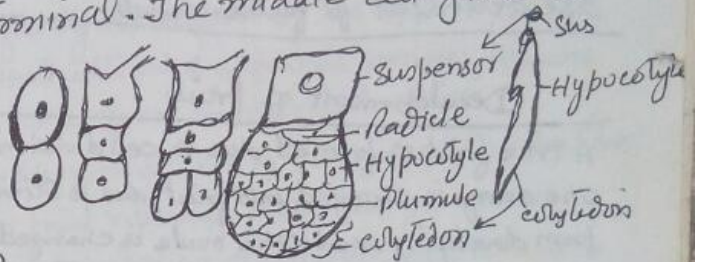 rminal. The middle cell
Suspensor
Radicle
Hypocotyle
Plumule
Cotyledon
Sus
Hypocotyle
Cotyledon